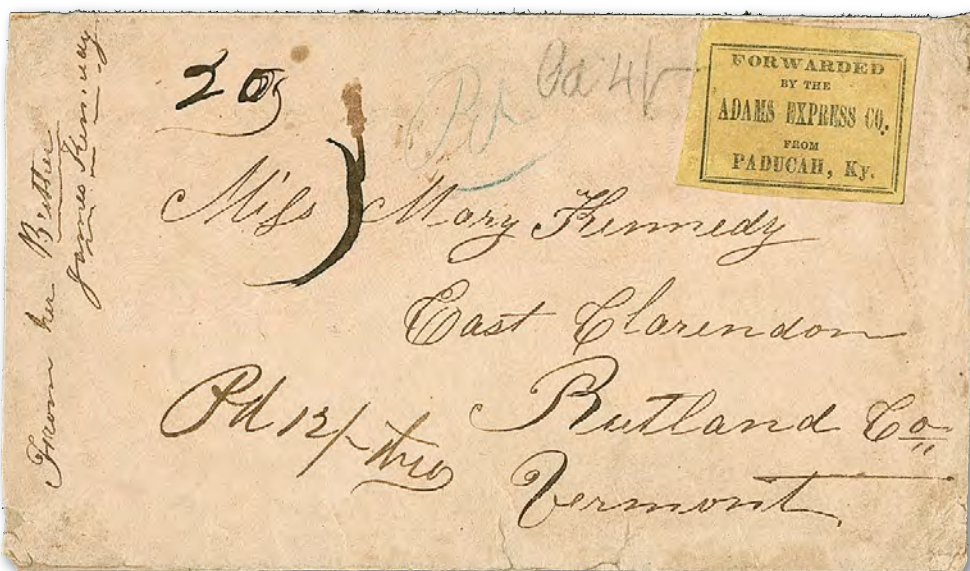 From her Brother
James Kennedy
20
Pd
FORWARDED
BY THE
ADAMS EXPRESS CO.
FROM
PADUCAH, Ky.
Miss Mary Kennedy
East Clarendon
Rutland Co
Vermont
Pd 12/-